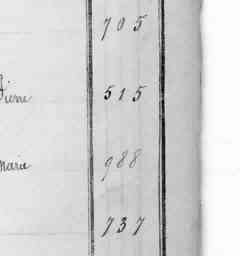 705
Pierre 515
Marie 988
737